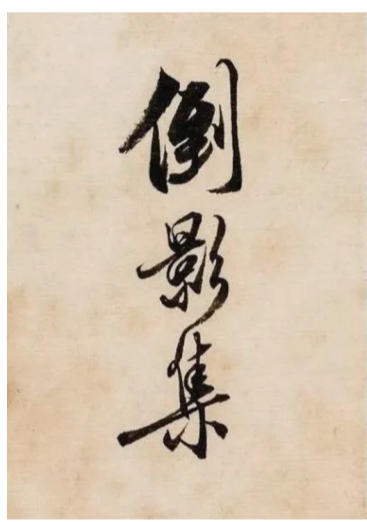 倒影集